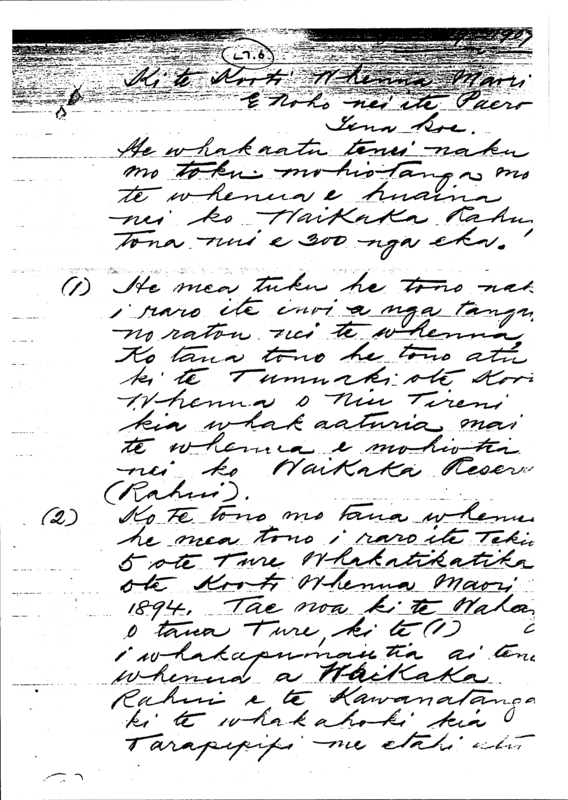 1907
L7.6
Ki te Kooti Whenua Maori
E Noho nei ite Paero
Tena koe.
He whakaatu tenei naku
mo toku mohiotanga mo
te whenua e huaina
nei ko Waikaka Rahui
Tona nui e 300 nga eka.
(1) He mea tuku he tono nak
i raro ite invoi a nga tanga
no ratou nei te whenua,
Ko taua tono he tono atu
ki te Tumuaki ote Koo
Whenua o Niu Tireni
kia whakaaturia mai
te whenua e mohiotia
nei ko Waikaka Reserv
(Rahui).
(2) Ko te tono mo taua whenu
he mea tono i raro ite Teki
5 ote Ture Whakatikatika
ote Kooti Whenua Maori
1894. Tae noa ki te Wahan
o taua Ture, ki te (1)
i whakapumautia ai tene
whenua a Waikaka
Rahui e te Kawanatanga
ki te whakahoki kia
Tarapipipi me etahi atu